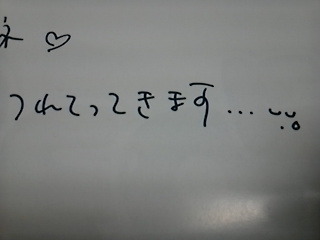 ネ ♡
つれてってきます...